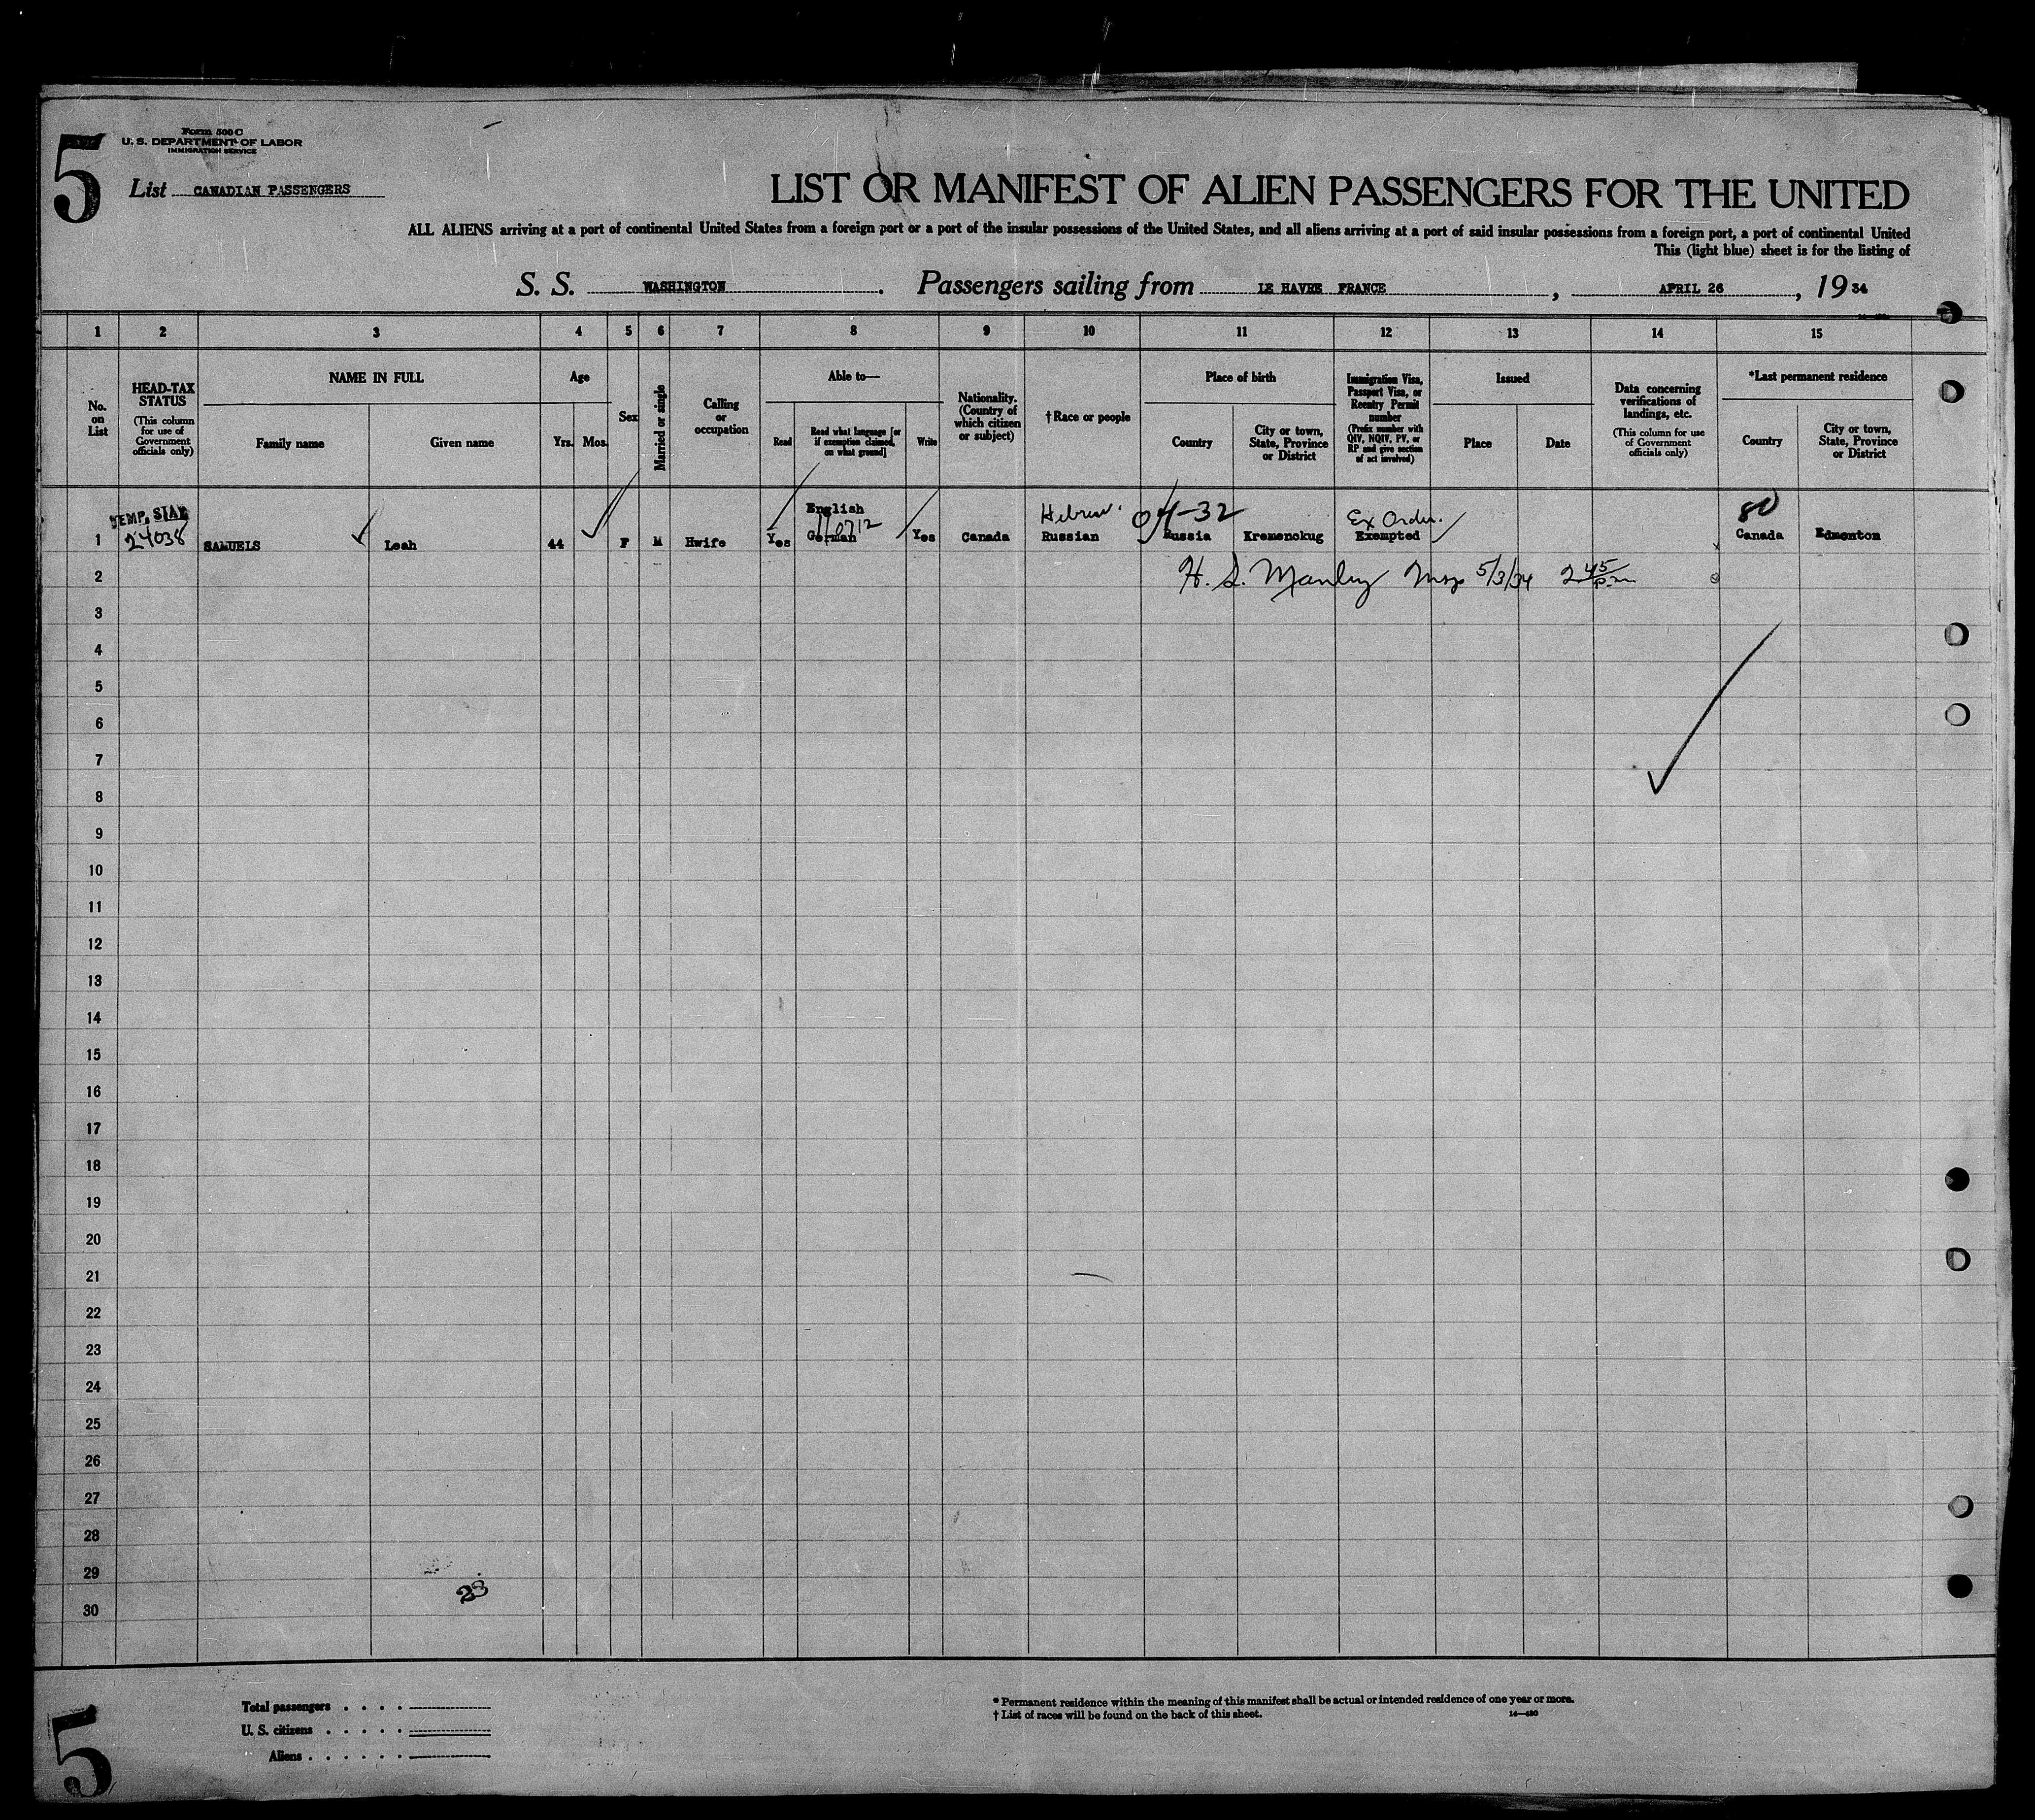 5
Form 500 C
U. S. DEPARTMENT OF LABOR
IMMIGRATION SERVICE
List CANADIAN PASSENGERS
LIST OR MANIFEST OF ALIEN PASSENGERS FOR THE UNITED
ALL ALIENS arriving at a port of continental United States from a foreign port or a port of the insular possessions of the United States, and all aliens arriving at a port of said insular possessions from a foreign port, a port of continental United
This (light blue) sheet is for the listing of
S. S. WASHINGTON. Passengers sailing from LE HAVRE FRANCE, APRIL 26, 19 34
1 2 3 4 5 6 7 8 9 10 11 12 13 14 15
No. on List
HEAD-TAX STATUS
(This column for use of Government officials only)
NAME IN FULL
Family name
Given name
Age
Yrs.
Mos.
Sex
Married or single
Calling or occupation
Able to—
Read
Read what language [or if exemption claimed, on what ground]
Write
Nationality. (Country of which citizen or subject)
†Race or people
Place of birth
Country
City or town, State, Province or District
Immigration Visa, Passport Visa, or Reentry Permit number
(Prefix number with QIV, NQIV, PV, or RP and give section of act involved)
Issued
Place
Date
Data concerning verifications of landings, etc.
(This column for use of Government officials only)
*Last permanent residence
Country
City or town, State, Province or District
TEMP. STAY English Hebrew. Ex Order. 80
24038
1 SAMUELS Leah 44 F M Hwife Yes German Yes Canada Russian Russia Kremenckug Exempted Canada Edmonton
2 H. S. Manley 5/3/34 2 45 p.m
3
4
5
6
7
8
9
10
11
12
13
14
15
16
17
18
19
20
21
22
23
24
25
26
27
28
29
23
30
Total passengers
U. S. citizens
Aliens
* Permanent residence within the meaning of this manifest shall be actual or intended residence of one year or more.
† List of races will be found on the back of this sheet.
14—480
5